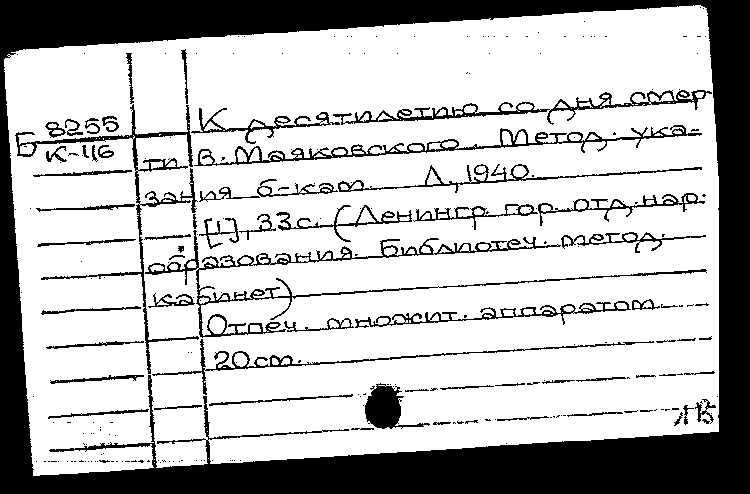 Б 8255
К-116
К десятилетию со дня смер-
ти В. Маяковского. Метод. ука-
зания б-кам. Л., 1940.
[1], 33 с. (Ленингр. гор. отд. нар.
образования. Библиотеч. метод.
кабинет)
Отпеч. множит. аппаратом.
20 см.